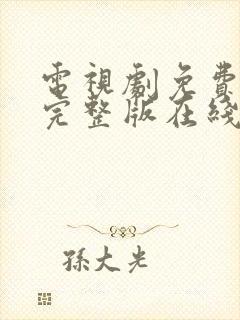 電視劇免費
完整版在綫
孫大光